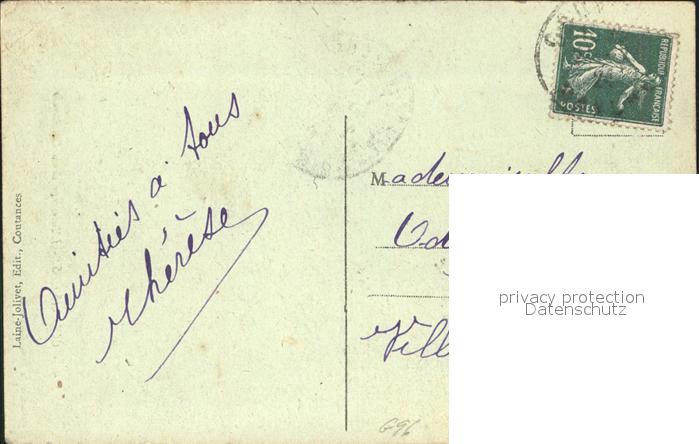 Amitiés à tous
Thérèse
Laine-Jolivet, Edit., Coutances
10c
REPUBLIQUE FRANÇAISE
POSTES
Mademoiselle
privacy protection
Datenschutz
G96